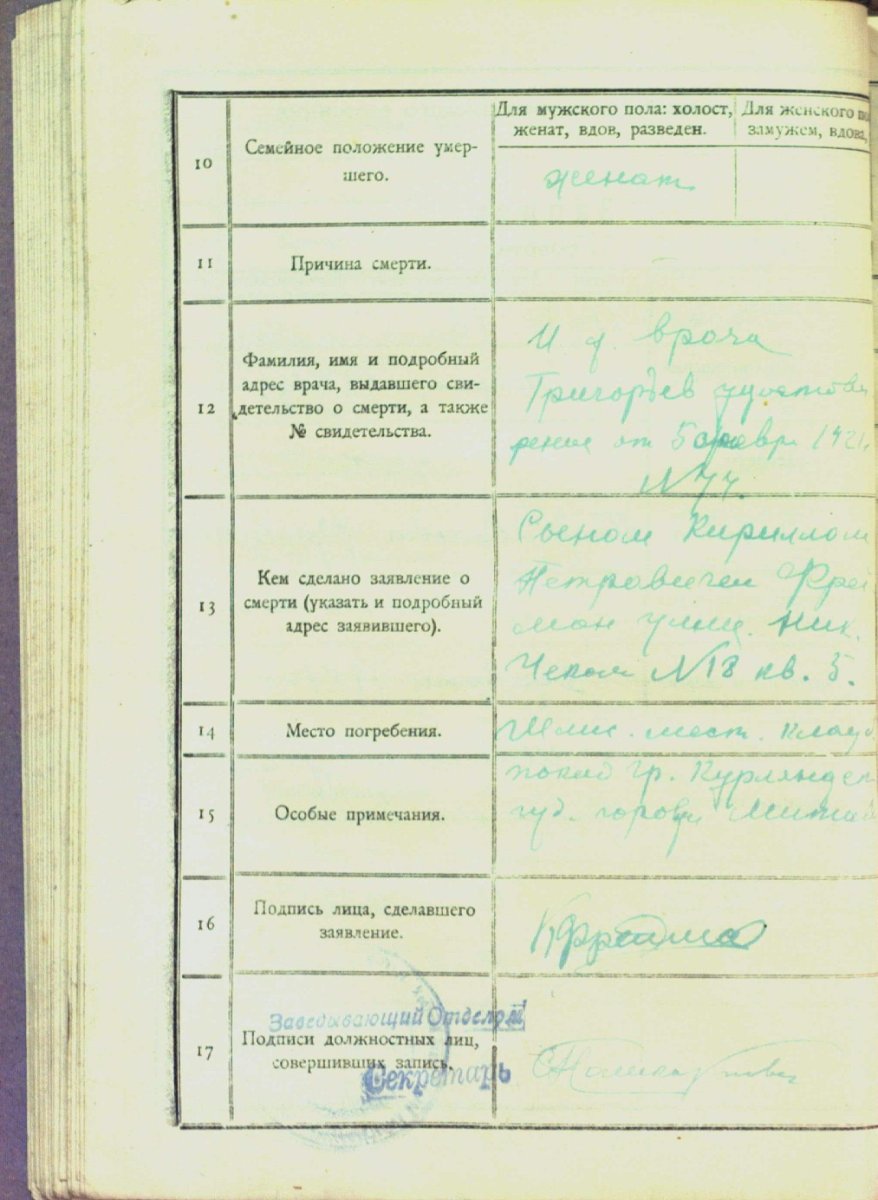 Для мужского пола: холост,
женат, вдов, разведен.
Для женского
замужем, вдова,
10
Семейное положение умер-
шего.
женат
11
Причина смерти.
12
Фамилия, имя и подробный
адрес врача, выдавшего сви-
детельство о смерти, а также
№ свидетельства.
И д. врача
Григорьев
рение от 5 февр
N 77.
13
Кем сделано заявление о
смерти (указать и подробный
адрес заявившего).
Сыном Кириллом
Петровичем Фрей
ман улиц. Ник.
N 18 кв. 5.
14
Место погребения.
мест. клад
15
Особые примечания.
гр. Курляндск
губ. города Митав
16
Подпись лица, сделавшего
заявление.
17
Заведывающий Отделом
Подписи должностных лиц,
совершивших запись.
Секретарь